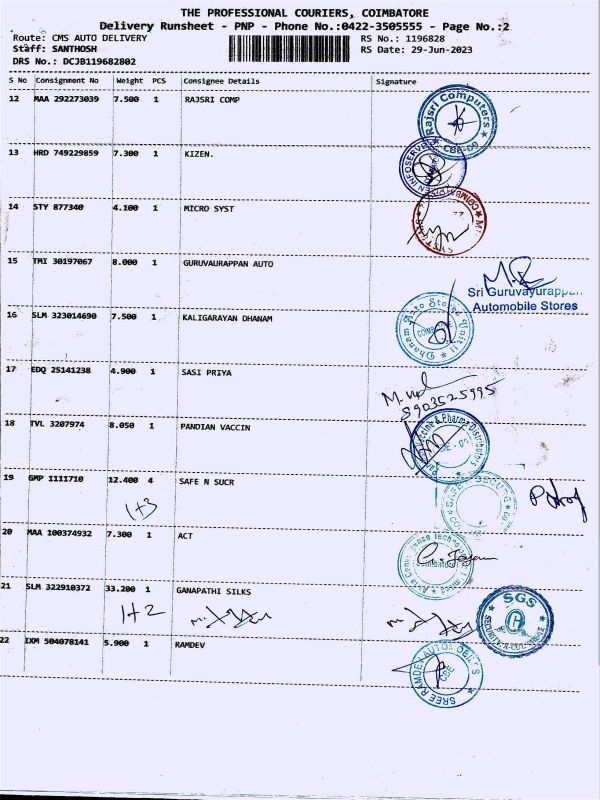 THE PROFESSIONAL COURIERS, COIMBATORE
Delivery Runsheet - PNP - Phone No.:0422-3505555 - Page No.:2
Route: CMS AUTO DELIVERY RS No.: 1196828
Staff: SANTHOSH RS Date: 29-Jun-2023
DRS No.: DCJB119682802
S No Consignment No Weight PCS Consignee Details Signature
12 MAA 292273039 7.500 1 RAJSRI COMP
Rajsri Computers
CBE-09
13 HRD 749229859 7.300 1 KIZEN.
14 STY 877340 4.100 1 MICRO SYST
15 TMI 30197067 8.000 1 GURUVAURAPPAN AUTO
Sri Guruvayurappan
Automobile Stores
16 SLM 323014690 7.500 1 KALIGARAYAN DHANAM
Dhanam Auto Stores Unit II
17 EDQ 25141238 4.900 1 SASI PRIYA
8903525995
18 TVL 3207974 8.050 1 PANDIAN VACCIN
Vaccine & Pharma Distributors
19 GMP 1111710 12.400 4 SAFE N SUCR
1+3
20 MAA 100374932 7.300 1 ACT
21 SLM 322910372 33.200 1 GANAPATHI SILKS
1+2
SGS
22 IXM 504078141 5.900 1 RAMDEV
SREE RAMDEV AUTOMOBILES
CBE